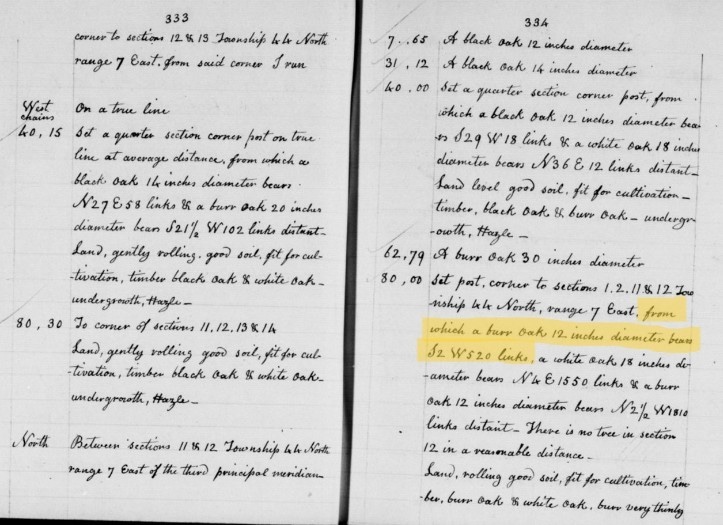 333
corner to sections 12 & 13 Township 44 North
range 7 East, from said corner I run
West On a true line
chains
40,15 Set a quarter section corner post on true
line at average distance, from which a
black oak 14 inches diameter bears
N27 E58 links & a burr oak 20 inches
diameter bears S21½ W102 links distant_
Land, gently rolling, good soil, fit for cul-
tivation, timber black oak & white oak_
undergrowth, Hazle_
80,30 To corner of sections 11, 12, 13 & 14
Land, gently rolling good soil, fit for cul-
tivation, timber black oak & white oak_
undergrowth, Hazle_
North Between sections 11 & 12 Township 44 North
range 7 East of the third principal meridian_
334
7..65 A black oak 12 inches diameter
31,12 A black oak 14 inches diameter
40.00 Set a quarter section corner post, from
which a black oak 12 inches diameter bea
rs S29 W18 links & a white oak 18 inches
diameter bears N36 E 12 links distant_
Land level good soil, fit for cultivation_
timber, black oak & burr oak_ undergr-
owth, Hazle_
62,79 A burr oak 30 inches diameter
80,00 Set post, corner to sections 1.2.11 & 12 Tow
nship 44 North, range 7 East, from
which a burr oak 12 inches diameter bears
S2 W520 links, a white oak 18 inches di-
ameter bears N4 E1550 links & a burr
oak 12 inches diameter bears N2½ W1810
links distant_ There is no tree in section
12 in a reasonable distance_
Land, rolling good soil, fit for cultivation, tim
ber, burr oak & white oak, burr very thinly